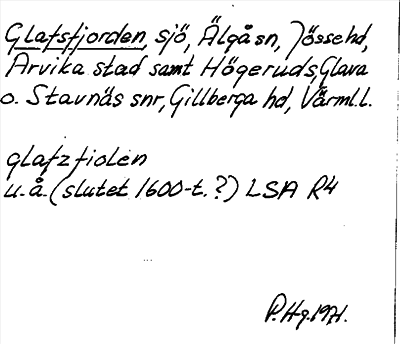 Glafsfjorden, sjö, Älgå sn, Jösse hd,
Arvika stad samt Högeruds, Glava
o. Stavnäs snr, Gillberga hd, Värml. l.
glafzfiolen
u.å. (slutet 1600-t.?) LSA R4
P.Hg. 1971.